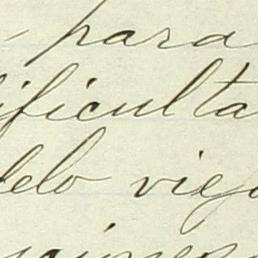 - para
ificulta
delo viejo